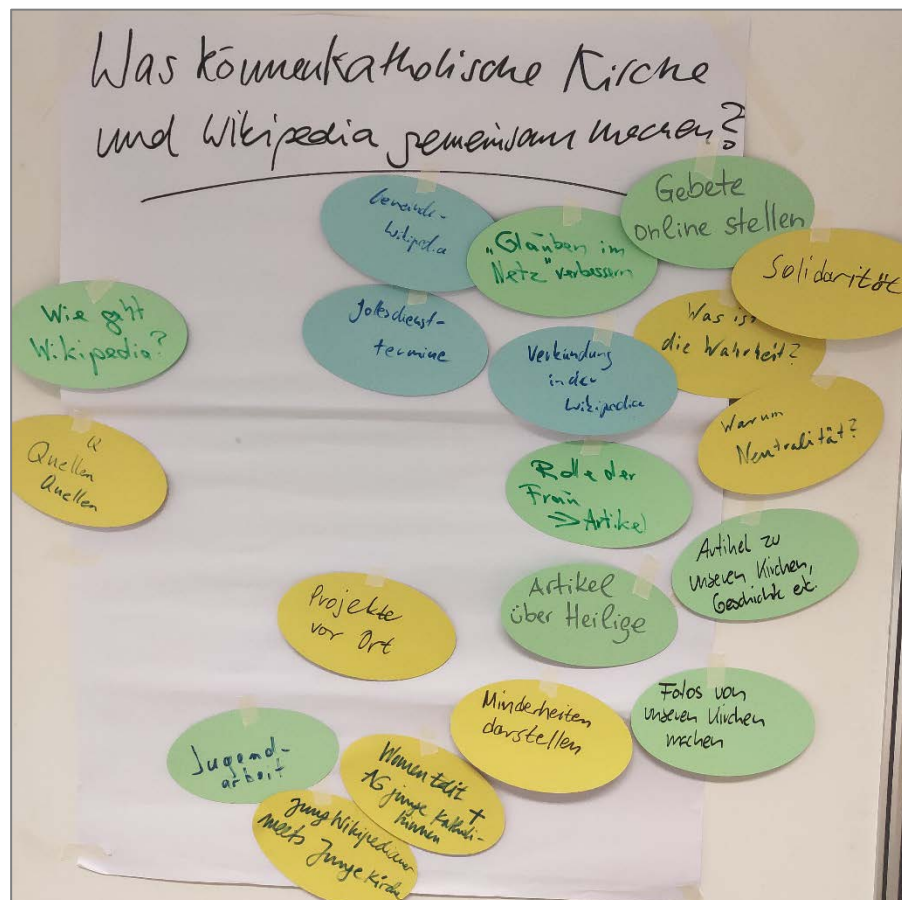 Was können katholische Kirche
und Wikipedia gemeinsam machen?
Gemeinde-
Wikipedia
"Glauben im
Netz" verbessern
Gebete
online stellen
Solidarität
Wie geht
Wikipedia?
Gottesdienst-
termine
Verkündung
in der
Wikipedia
Was ist
die Wahrheit?
Warum
Neutralität?
Quellen
Quellen
Rolle der
Frau
=> Artikel
Artikel zu
unseren Kirchen,
Geschichte etc.
Projekte
vor Ort
Artikel
über Heilige
Minderheiten
darstellen
Fotos von
unseren Kirchen
machen
Jugend-
arbeit
Women Edit +
AG junge Katholi-
kinnen
JungWikipedianer
meets Junge Kirche